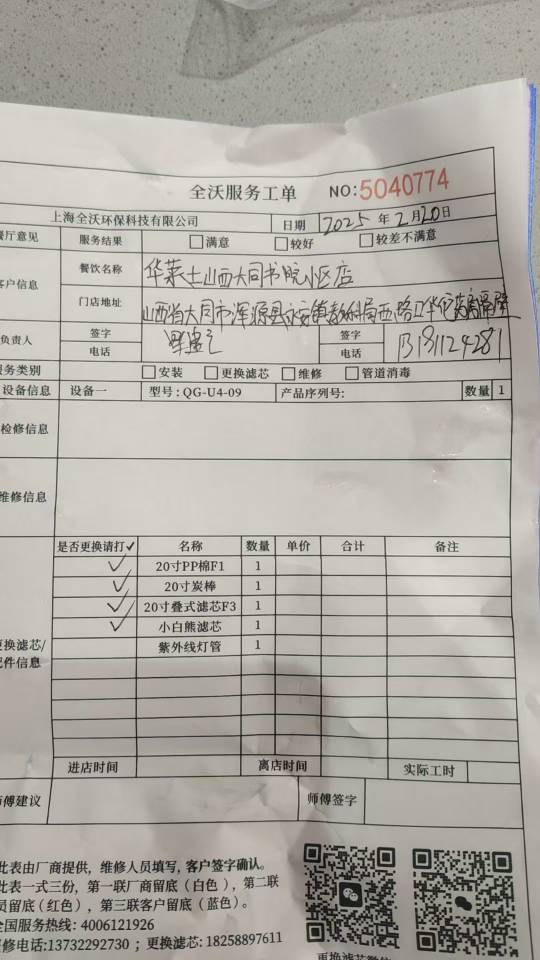 全沃服务工单 NO:5040774
上海全沃环保科技有限公司 日期 2025 年 2 月 20 日
餐厅意见 服务结果 满意 较好 较差不满意
客户信息 餐饮名称 华莱士山西大同书院小区店
门店地址 山西省大同市浑源县永安镇教科局西路口华佗药房隔壁
负责人 签字 签字
电话 电话 13181124281
服务类别 安装 更换滤芯 维修 管道消毒
设备信息 设备一 型号: QG-U4-09 产品序列号: 数量 1
检修信息
维修信息
是否更换请打✓ 名称 数量 单价 合计 备注
✓ 20寸PP棉F1 1
✓ 20寸炭棒 1
✓ 20寸叠式滤芯F3 1
✓ 小白熊滤芯 1
紫外线灯管 1
更换滤芯/
配件信息
进店时间 离店时间 实际工时
师傅建议 师傅签字
此表由厂商提供，维修人员填写，客户签字确认。
此表一式三份，第一联厂商留底（白色），第二联
员留底（红色），第三联客户留底（蓝色）。
全国服务热线: 4006121926
维修电话:13732292730 ；更换滤芯: 18258897611